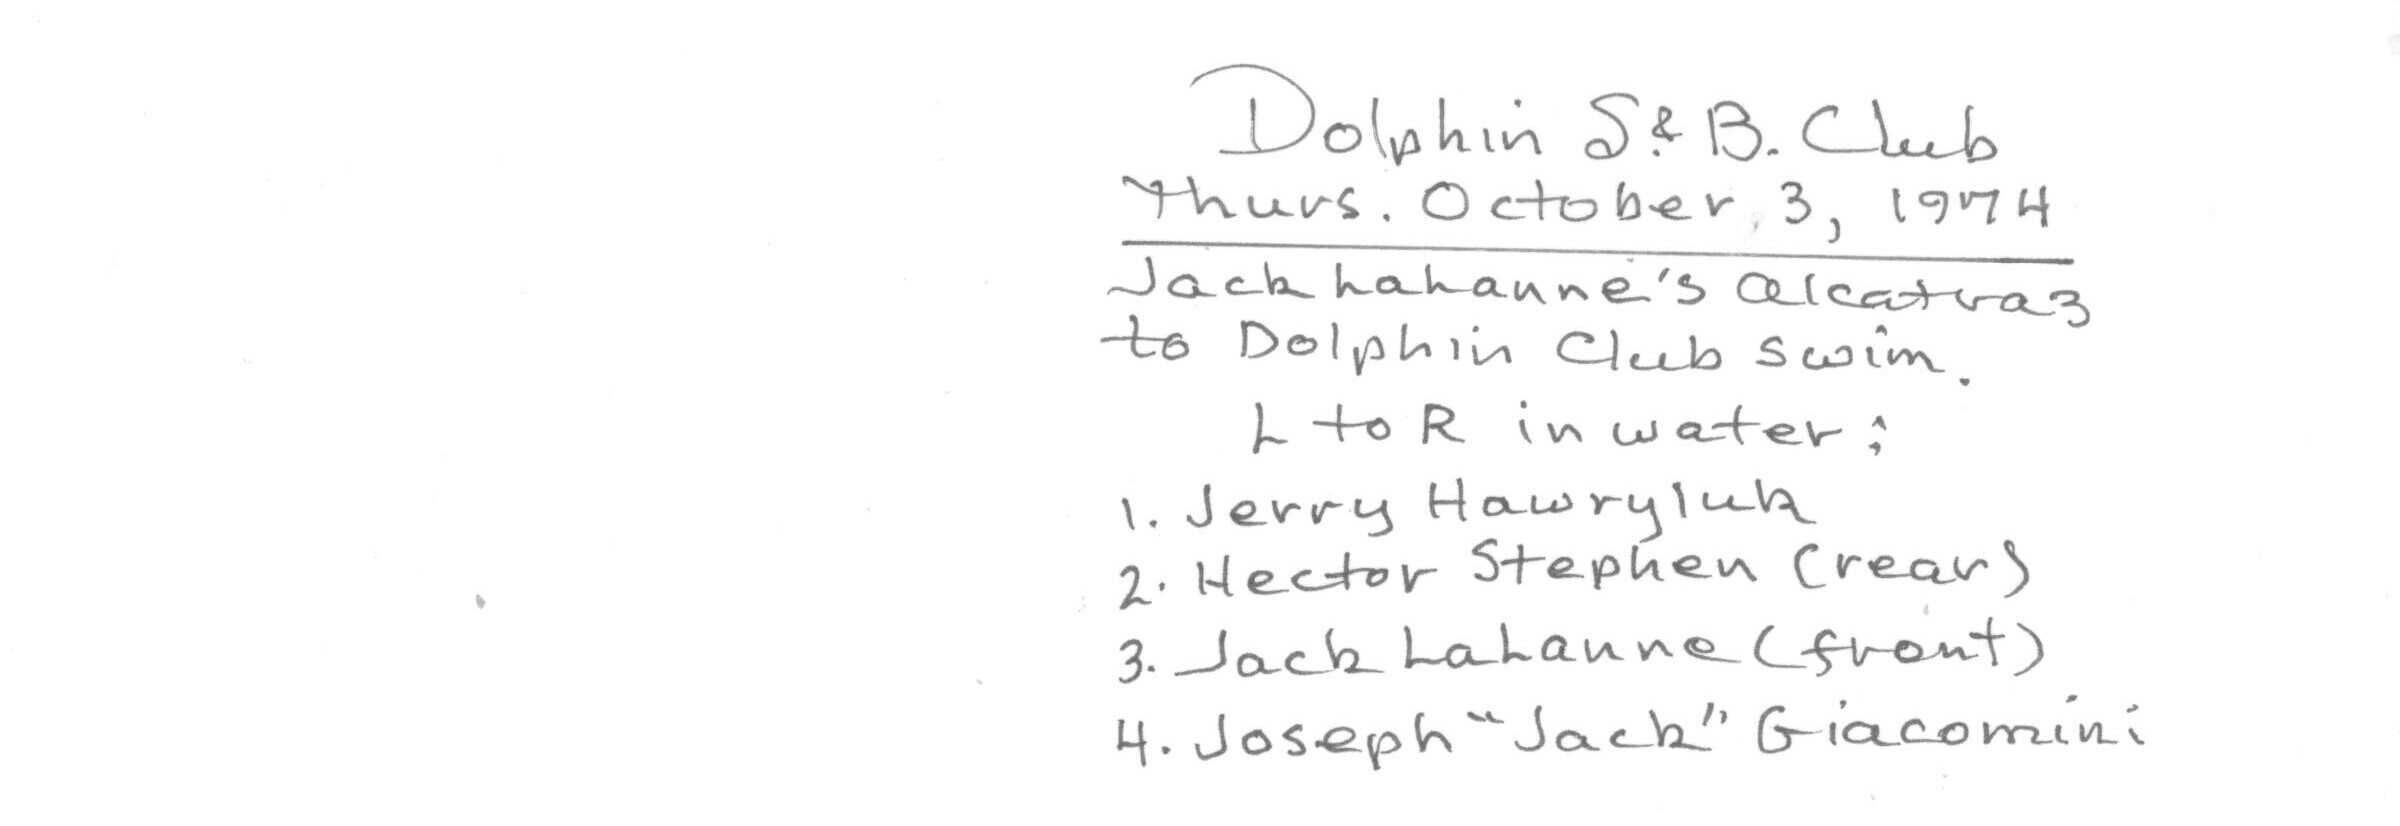 Dolphin S & B. Club
Thurs. October 3, 1974
Jack LaLanne's Alcatraz
to Dolphin Club swim.
L to R in water:
1. Jerry Hawryluk
2. Hector Stephen (rear)
3. Jack LaLanne (front)
4. Joseph "Jack" Giacomini